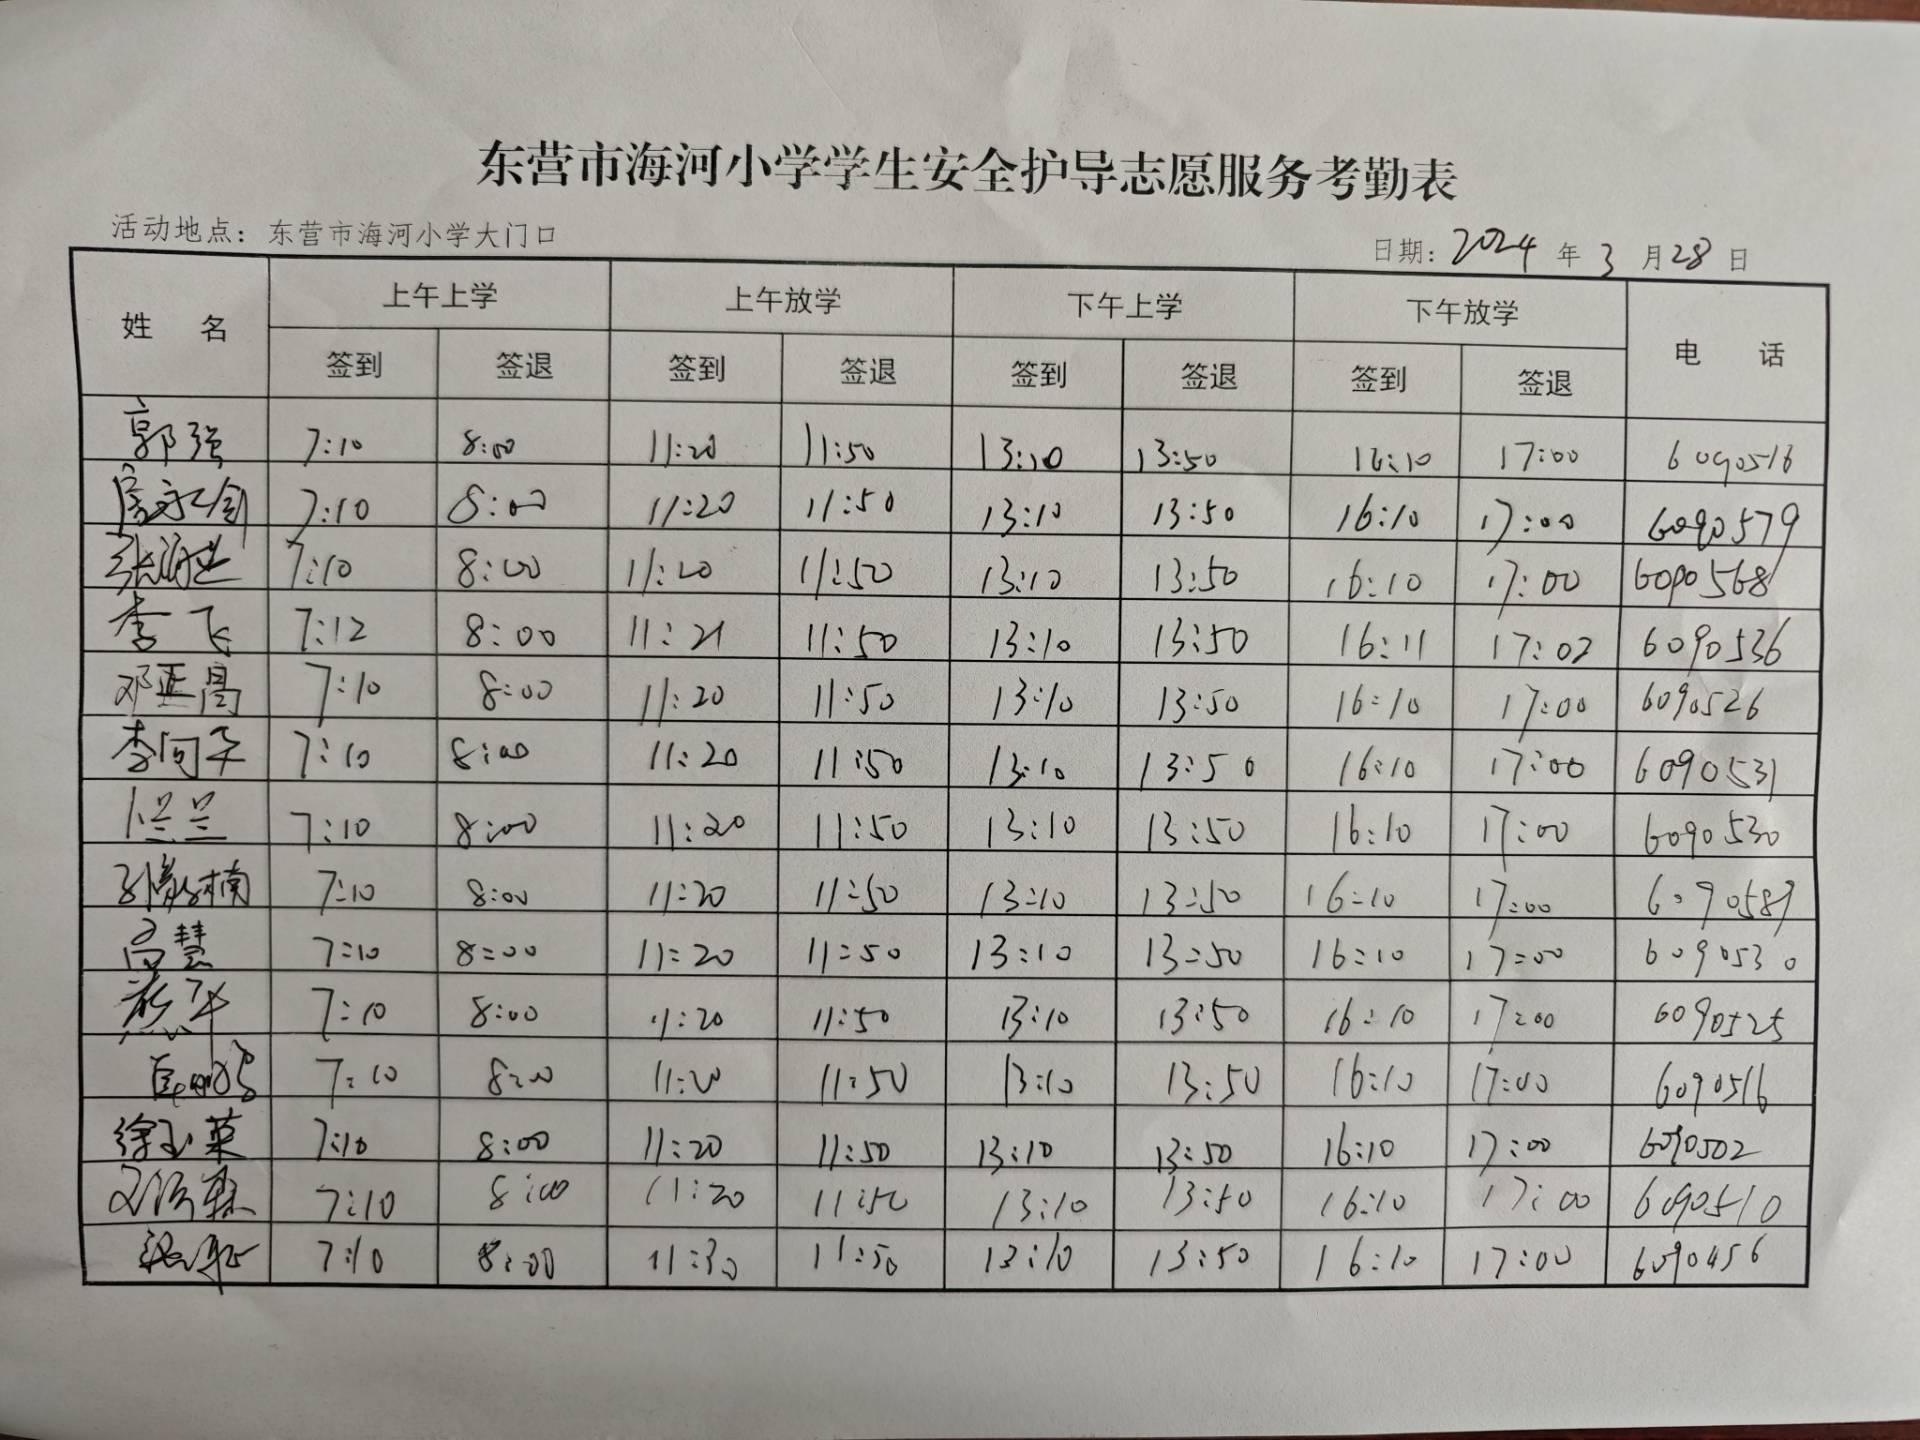 东营市海河小学学生安全护导志愿服务考勤表
活动地点：东营市海河小学大门口 日期：2024 年 3 月 28 日
姓 名 上午上学 上午放学 下午上学 下午放学 电 话
签到 签退 签到 签退 签到 签退 签到 签退
郭强 7:10 8:00 11:20 11:50 13:10 13:50 16:10 17:00 6090516
7:10 8:00 11:20 11:50 13:10 13:50 16:10 17:00 6090579
7:10 8:00 11:20 11:50 13:10 13:50 16:10 17:00 6090568
李飞 7:12 8:00 11:21 11:50 13:10 13:50 16:11 17:02 6090536
邓亚昌 7:10 8:00 11:20 11:50 13:10 13:50 16:10 17:00 6090526
李向军 7:10 8:00 11:20 11:50 13:10 13:50 16:10 17:00 6090531
卜兰兰 7:10 8:00 11:20 11:50 13:10 13:50 16:10 17:00 6090530
7:10 8:00 11:20 11:50 13:10 13:50 16:10 17:00 6090587
高慧 7:10 8:00 11:20 11:50 13:10 13:50 16:10 17:00 6090530
7:10 8:00 11:20 11:50 13:10 13:50 16:10 17:00 6090525
7:10 8:00 11:20 11:50 13:10 13:50 16:10 17:00 6090516
徐玉英 7:10 8:00 11:20 11:50 13:10 13:50 16:10 17:00 6090502
7:10 8:00 11:20 11:50 13:10 13:50 16:10 17:00 6090510
7:10 8:00 11:30 11:50 13:10 13:50 16:10 17:00 6090456